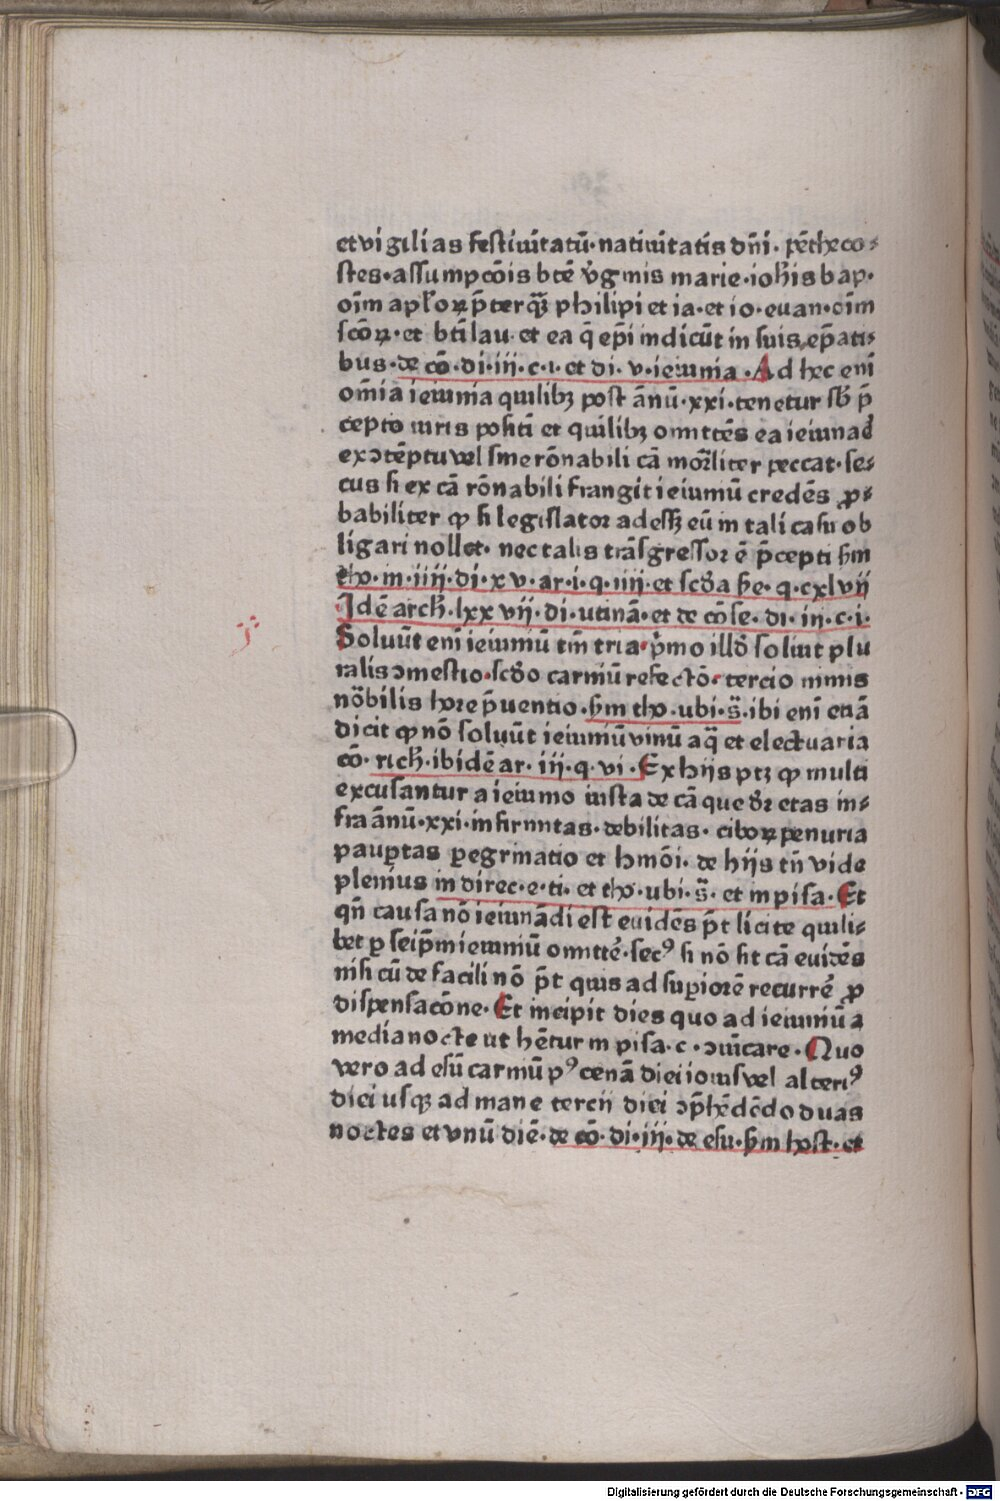 et vigilias festiuitatū·natiuitatis dn̄i·pēthecoꝰ
stes·assumpcōis btē v̓gīnis marie·ioh̄is bap·
oīm apl̓oꝝ p̄terqʒ̄ philipi et ia·et io·euan·oīm
scōꝝ·et bt̄i lau·et ea q̄ ep̄i indicūt in suis ep̄ati⸗
bus·de cō·di·iij·c·i·et di·v·ieiunia·Ad hec enī
om̄ia ieiunia quilibꝫ post ānū·xxi·tenetur sb̄ p̄
cepto iuris positi et quilibꝫ omittēs ea ieiunad̄
ex ↄtēptu vel sine rōnabili cā mor̄liter peccat·se⸗
cus si ex cā rōnabili frangit ieiuniū credēs ꝓ⸗
babiliter ꝙ si legislator adessꝫ eū in tali casu ob
ligari nollet·nec talis trāsgressor ē p̄cepti ẜm
tho·in·iiij·di·xv·ar·i·q·iiij·et scd̄a ẜe·q·cxlvij
Idē arch̄·lxxvij·di·utinā·et de cōse·di·iij·c·i·
Soluūt enī ieiuniū tm̄ tria·p̓mo illd̄ soluit plu
ralis ↄmestio·scd̄o carniū refectō·tercio nimis
nōbilis hore p̄uentio·ẜm tho·ubi·s̄·ibi enī etiā
dicit ꝙ nō soluūt ieiuniū vinū aq̄ et electuaria
cō·rich̄·ibidē ar·iij·q·vi·Ex hijs ptꝫ ꝙ multi
excusantur a ieiunio iusta de cā que d̄r etas in⸗
fra ānū·xxi·infirmitas·debilitas·ciboꝝ penuria
pauꝑtas ꝑegrinatio et hmōi·de hijs tn̄ vide
plenius in direc·e·ti·et tho·ubi·s̄·et in pisa·Et
qn̄ causa nō ieiunādi est euidēs p̄t licite quili⸗
bet ꝑ seip̄m ieiuniū omittē·secꝰ si nō sit cā euidēs
nisi cū de facili nō p̄t quis ad suꝑiorē recurrē ꝓ
dispensacōne·Et incipit dies quo ad ieiuniū a
media nocte ut hētur in pisa·c·ↄuīcare·Quo
vero ad esū carniū pꝰ cenā diei iouis vel alteriꝰ
diei usqꝫ ad mane tercii diei ↄp̄hēdēdo duas
noctes et vnū diē·de cō·di·iij·de esu·ẜm host·et
Digitalisierung gefördert durch die Deutsche Forschungsgemeinschaft - DFG